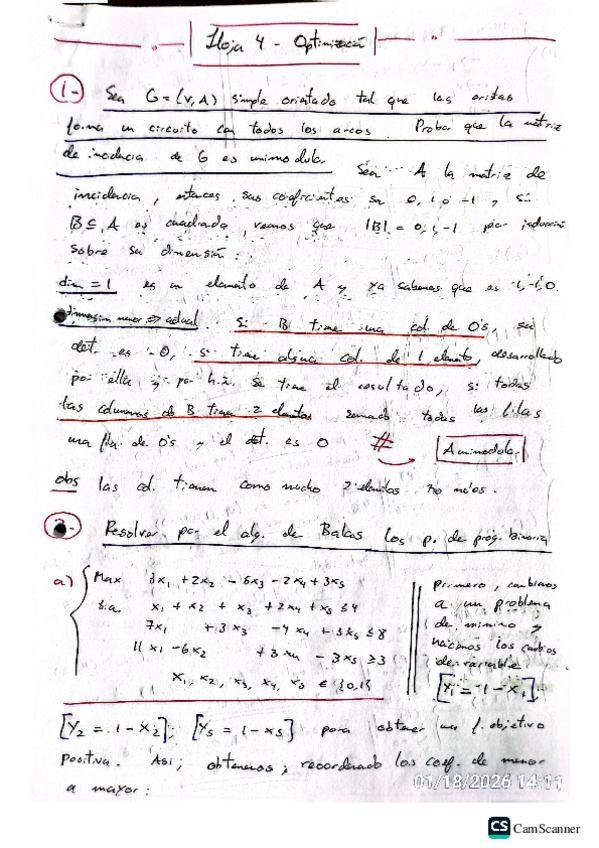 Hoja 4 - Optimización
1- Sea G = (V, A) simple orientado tal que las aristas
forma un circuito con todos los arcos. Probar que la matriz
de incidencia de G es unimodular. Sea A la matriz de
incidencia, entonces sus coeficientes son 0, 1 o -1, si
B ⊆ A es cuadrada, veamos que |B| = 0, 1, -1 por inducción
sobre su dimensión:
dim = 1 es un elemento de A y ya sabemos que es -1, 1, 0.
dimensión menor ⇒ actual Si B tiene una col. de 0's, su
det. es 0, si tiene alguna col. de 1 elemento, desarrollando
por ella y por h.i. se tiene el resultado, si todas
las columnas de B tienen 2 elementos sumando todas las filas
una fila de 0's y el det. es 0 # A unimodular
obs las col. tienen como mucho 2 elementos no nulos.
2- Resolver por el alg. de Balas los p. de prog. binaria
a) Max 3x1 + 2x2 - 6x3 - 2x4 + 3x5
s.a. x1 + x2 + x3 + 2x4 + x5 ≤ 4
7x1 + 3x3 - 4x4 + 3x5 ≤ 8
11x1 - 6x2 + 3x4 - 3x5 ≥ 3
x1, x2, x3, x4, x5 ∈ {0,1}
Primero, cambiamos
a un problema
de mínimo y
hacemos los cambios
de variable
[Y1 = 1 - x1]
[Y2 = 1 - x2], [Y5 = 1 - x5] para obtener una f. objetivo
positiva. Así, obtenemos, recordando los coef. de menor
a mayor:
01/18/2026 14:11
CS CamScanner